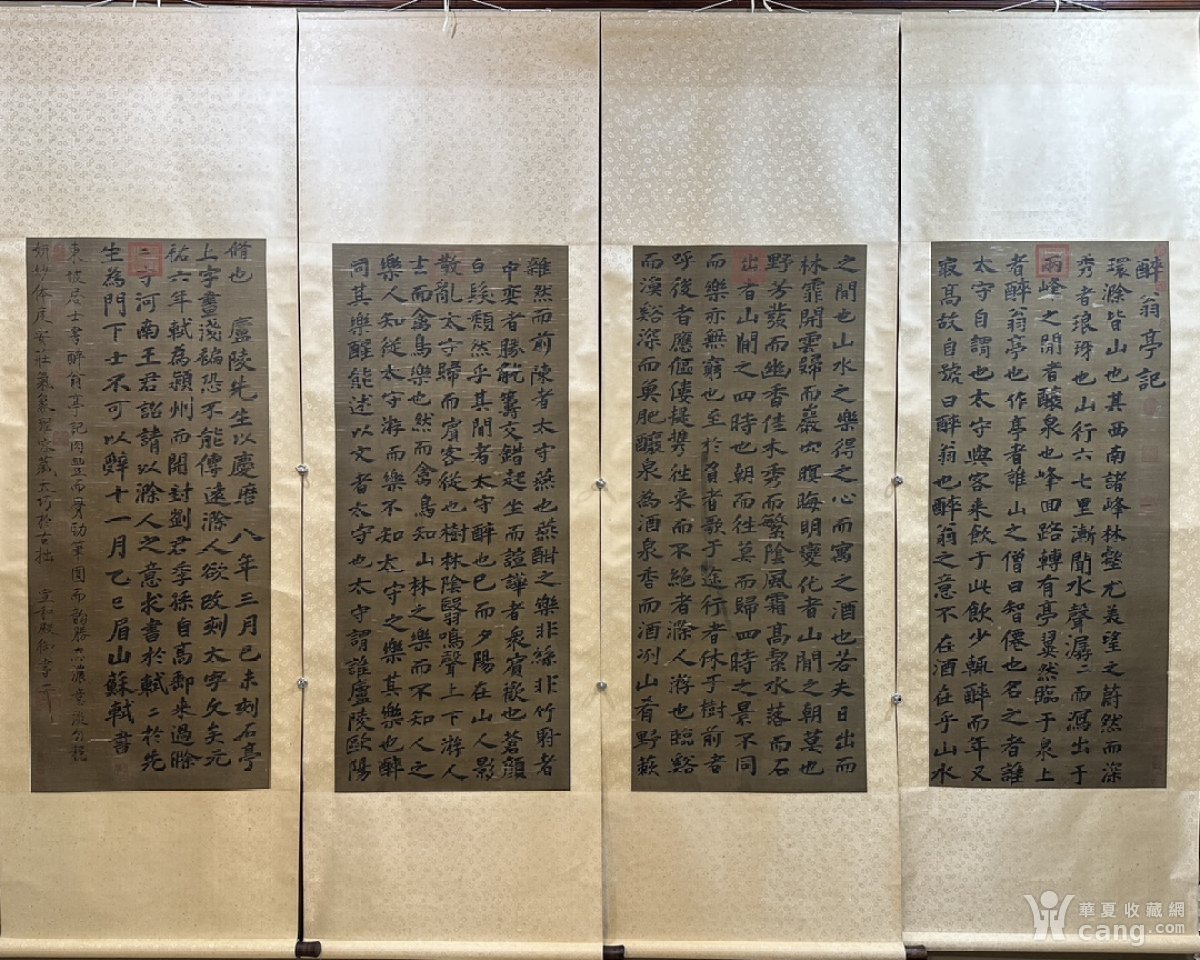 醉翁亭記
環滁皆山也其西南諸峰林壑尤美望之蔚然而深
秀者琅琊也山行六七里漸聞水聲潺二而瀉出于
兩峰之間者釀泉也峰回路轉有亭翼然臨于泉上
者醉翁亭也作亭者誰山之僧曰智僊也名之者誰
太守自謂也太守與客来飲于此飲少輒醉而年又
最高故自號曰醉翁也醉翁之意不在酒在乎山水
之間也山水之樂得之心而寓之酒也若夫日出而
林霏開雲歸而巖穴暝晦明變化者山間之朝莫也
野芳發而幽香佳木秀而繁陰風霜高絜水落而石
出者山間之四時也朝而往莫而歸四時之景不同
而樂亦無窮也至於負者歌于塗行者休乎樹前者
呼後者應傴僂提攜往来而不絕者滁人游也臨谿
而漁谿深而魚肥釀泉為酒泉香而酒冽山肴野蔌
雜然而前陳者太守燕也燕酣之樂非絲非竹射者
中奕者勝觥籌交錯起坐而諠譁者衆賓歡也蒼顏
白髮頹然乎其間者太守醉也已而夕陽在山人影
散亂太守歸而賓客從也樹林陰翳鳴聲上下游人
去而禽鳥樂也然而禽鳥知山林之樂而不知人之
樂人知從太守游而樂不知太守之樂其樂也醉
同其樂醒能述以文者太守也太守謂誰廬陵歐陽
脩也 廬陵先生以慶曆八年三月己未刻石亭
上字畫淺褊恐不能傳遠滁人欲改刻大字久矣元
祐六年軾為潁州而開封劉君季孫自高郵来過滁
二守河南王君詔請以滁人之意求書於軾二於先
生為門下士不可以辭十一月乙巳眉山蘇軾書
東坡居士書醉翁亭記肉豐而骨勁筆圓而韻勝態濃意淡
妍妙体度莊安氣象雍容藏大巧於古拙 宣和殿御書
華夏收藏網
cang.com